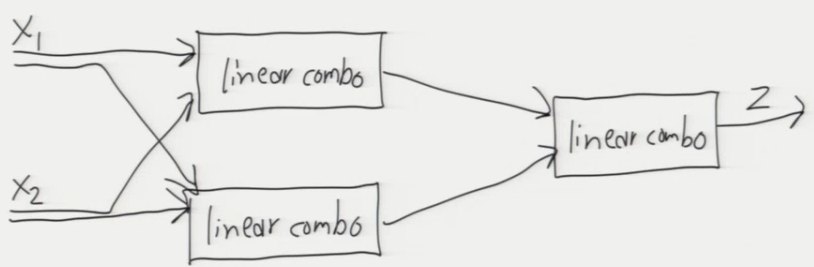 X1
linear combo
linear combo
Z
X2
linear combo